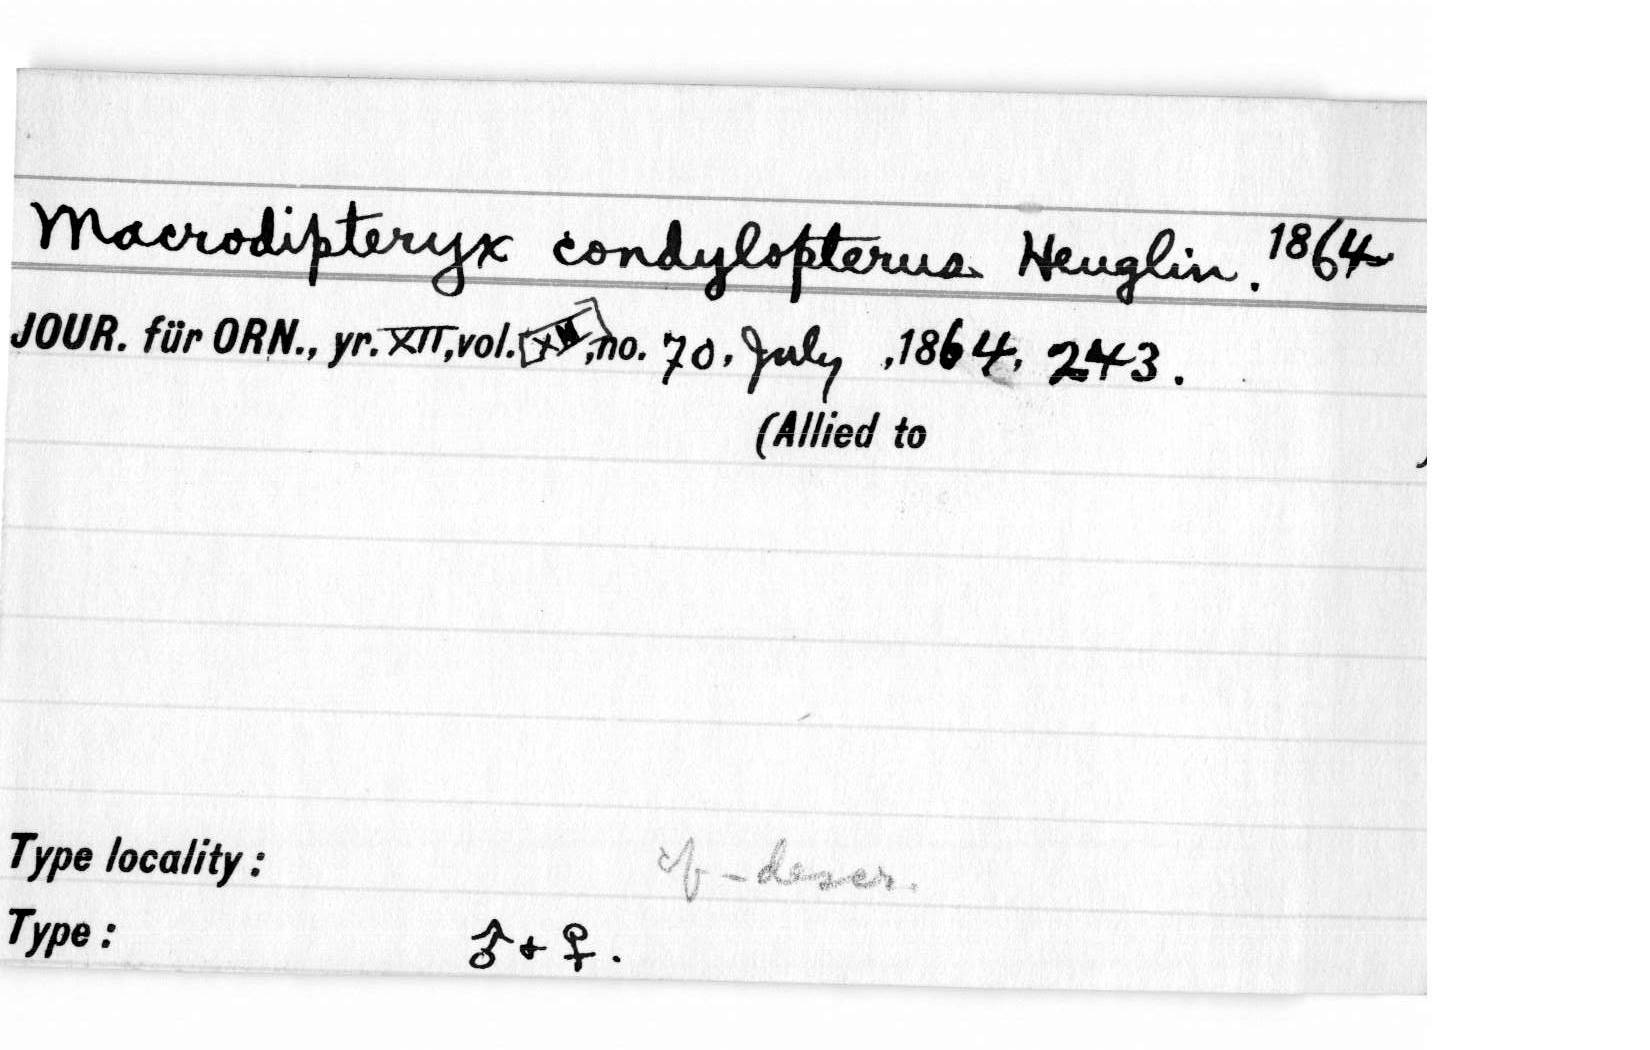 Macrodipteryx condylopterus Heuglin. 1864
JOUR. für ORN., yr. XII, vol. , no. 70, July , 1864, 243.
(Allied to )
Type locality : cf - descr.
Type : ♂ + ♀.